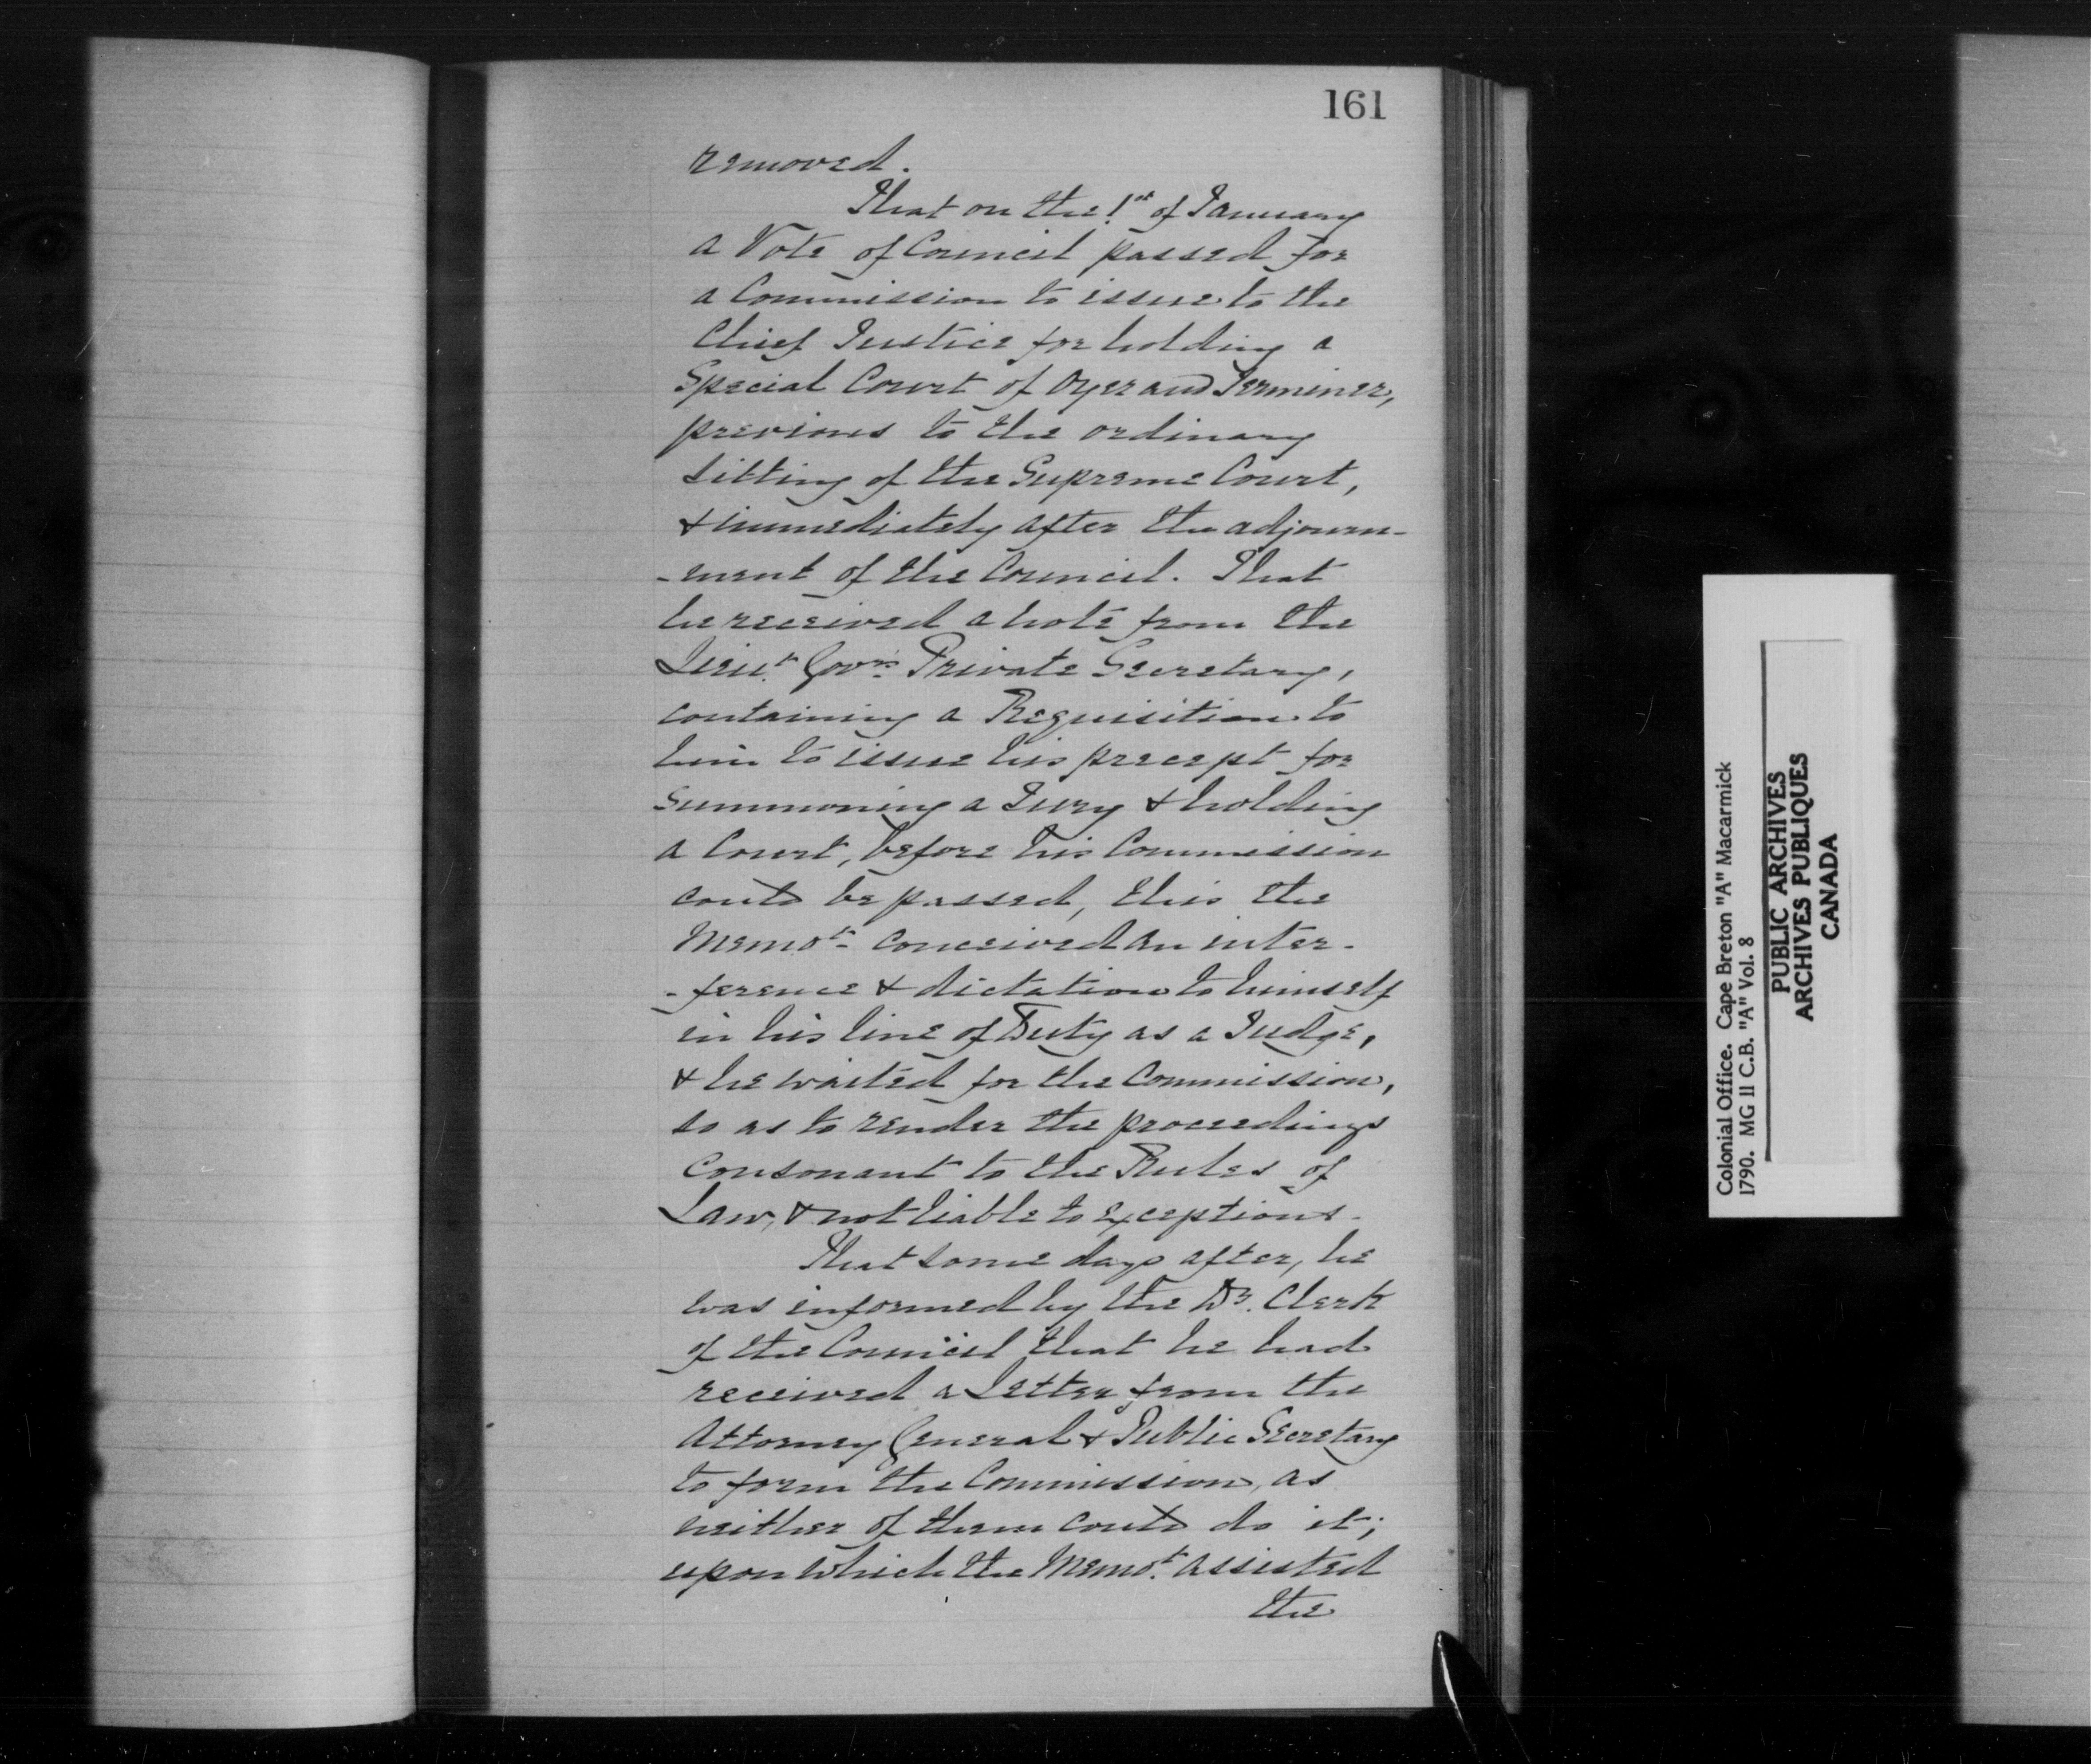 161
removed.
That on the 1st of January
a Vote of Council passed for
a Commission to issue to the
Chief Justice for holding a
Special Court of Oyer and Terminer,
previous to the ordinary
sitting of the Supreme Court,
& immediately after the adjourn-
-ment of the Council. That
he received a note from the
Lieut. Govrs. Private Secretary,
containing a Requisition to
him to issue his precept for
summoning a Jury & holding
a Court, before his Commission
could be passed, this the
Memot. conceived an inter-
-ference & dictation to himself
in his line of Duty as a Judge,
& he waited for the Commission,
so as to render the proceedings
consonant to the Rules of
Law, & not liable to exceptions.
That some days after, he
was informed by the Dy. Clerk
of the Council that he had
received a letter from the
Attorney General & Public Secretary
to form the Commission, as
neither of them could do it;
upon which the Memot. assisted
the
Colonial Office. Cape Breton "A" Macarmick
1790. MG 11 C.B. "A" Vol. 8
PUBLIC ARCHIVES
ARCHIVES PUBLIQUES
CANADA